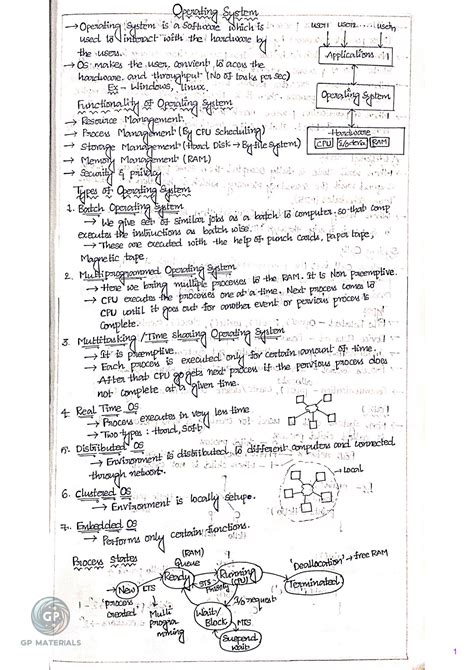 Operating System
→ Operating System is a Software which is
used to interact with the hardware by
the users.
→ OS makes the user, convient to acess the
hardware. and throughput (No of tasks per sec)
Ex - Windows, Linux.
user1 user2 .... usern
Applications
Operating System
Hardware
CPU I/o devices RAM
Functionality of Operating System
→ Resource Management.
→ Process Management (By CPU Scheduling)
→ Storage Management (Hard Disk → By file System)
→ Memory Management (RAM)
→ Security & privacy
Types of Operating System
1. Batch Operating System
→ We give set of Similar jobs as a batch to computer. so that comp
executes the instructions as batch wise.
→ These are excuted with the help of punch cards, paper tape,
Magnetic tape.
2. Multiprogrammed Operating System
→ Here we bring multiple processes to the RAM. It is Non preemptive.
→ CPU executes the processes one at a time. Next process comes to
CPU until it goes out for another event or pervious process is
complete.
3. Multitasking / Time Sharing Operating System
→ It is preemptive.
→ Each process is executed only for certain amount of time.
After that CPU gets next process if the pervious process does
not complete at a given time.
4. Real Time OS
→ Process executes in very less time
→ Two types : Hard, Soft
5. Distributed OS
→ Environment is distributed to different computers and connected
through network.
→ Local
6. Clustered OS
→ Environment is locally setup.
7. Embedded OS
→ Performs only certain functions.
Process States
(RAM)
Queue
Ready
Running
(CPU)
'Deallocation' → free RAM
Terminated
New
ETS
STS
Priority
process
created
Multi
progra
mming
I/o request
Wait/
Block
MTS
Suspend
wait
GP
GP MATERIALS
1